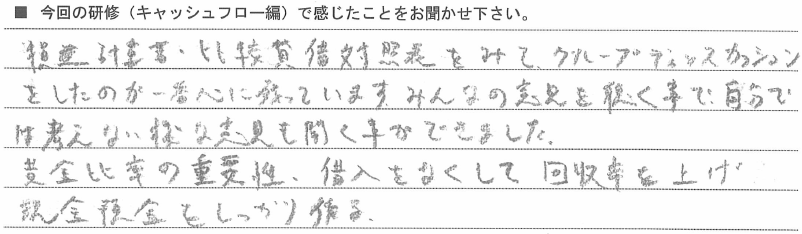 ■ 今回の研修（キャッシュフロー編）で感じたことをお聞かせ下さい。
損益計算書・比較貸借対照表をみて、グループディッスカッション
をしたのが一番心に残っています。みんなの意見を聴く事で、自分で
は考えない様な意見も聞く事ができました。
黄金比率の重要性、借入をなくして回収率を上げ
現金預金をしっかり作る。